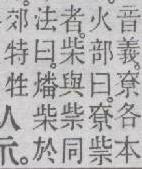 音義。尞各本
火部曰。尞祡
者。柴與祡同
法曰。燔柴於
郊特牲人示。